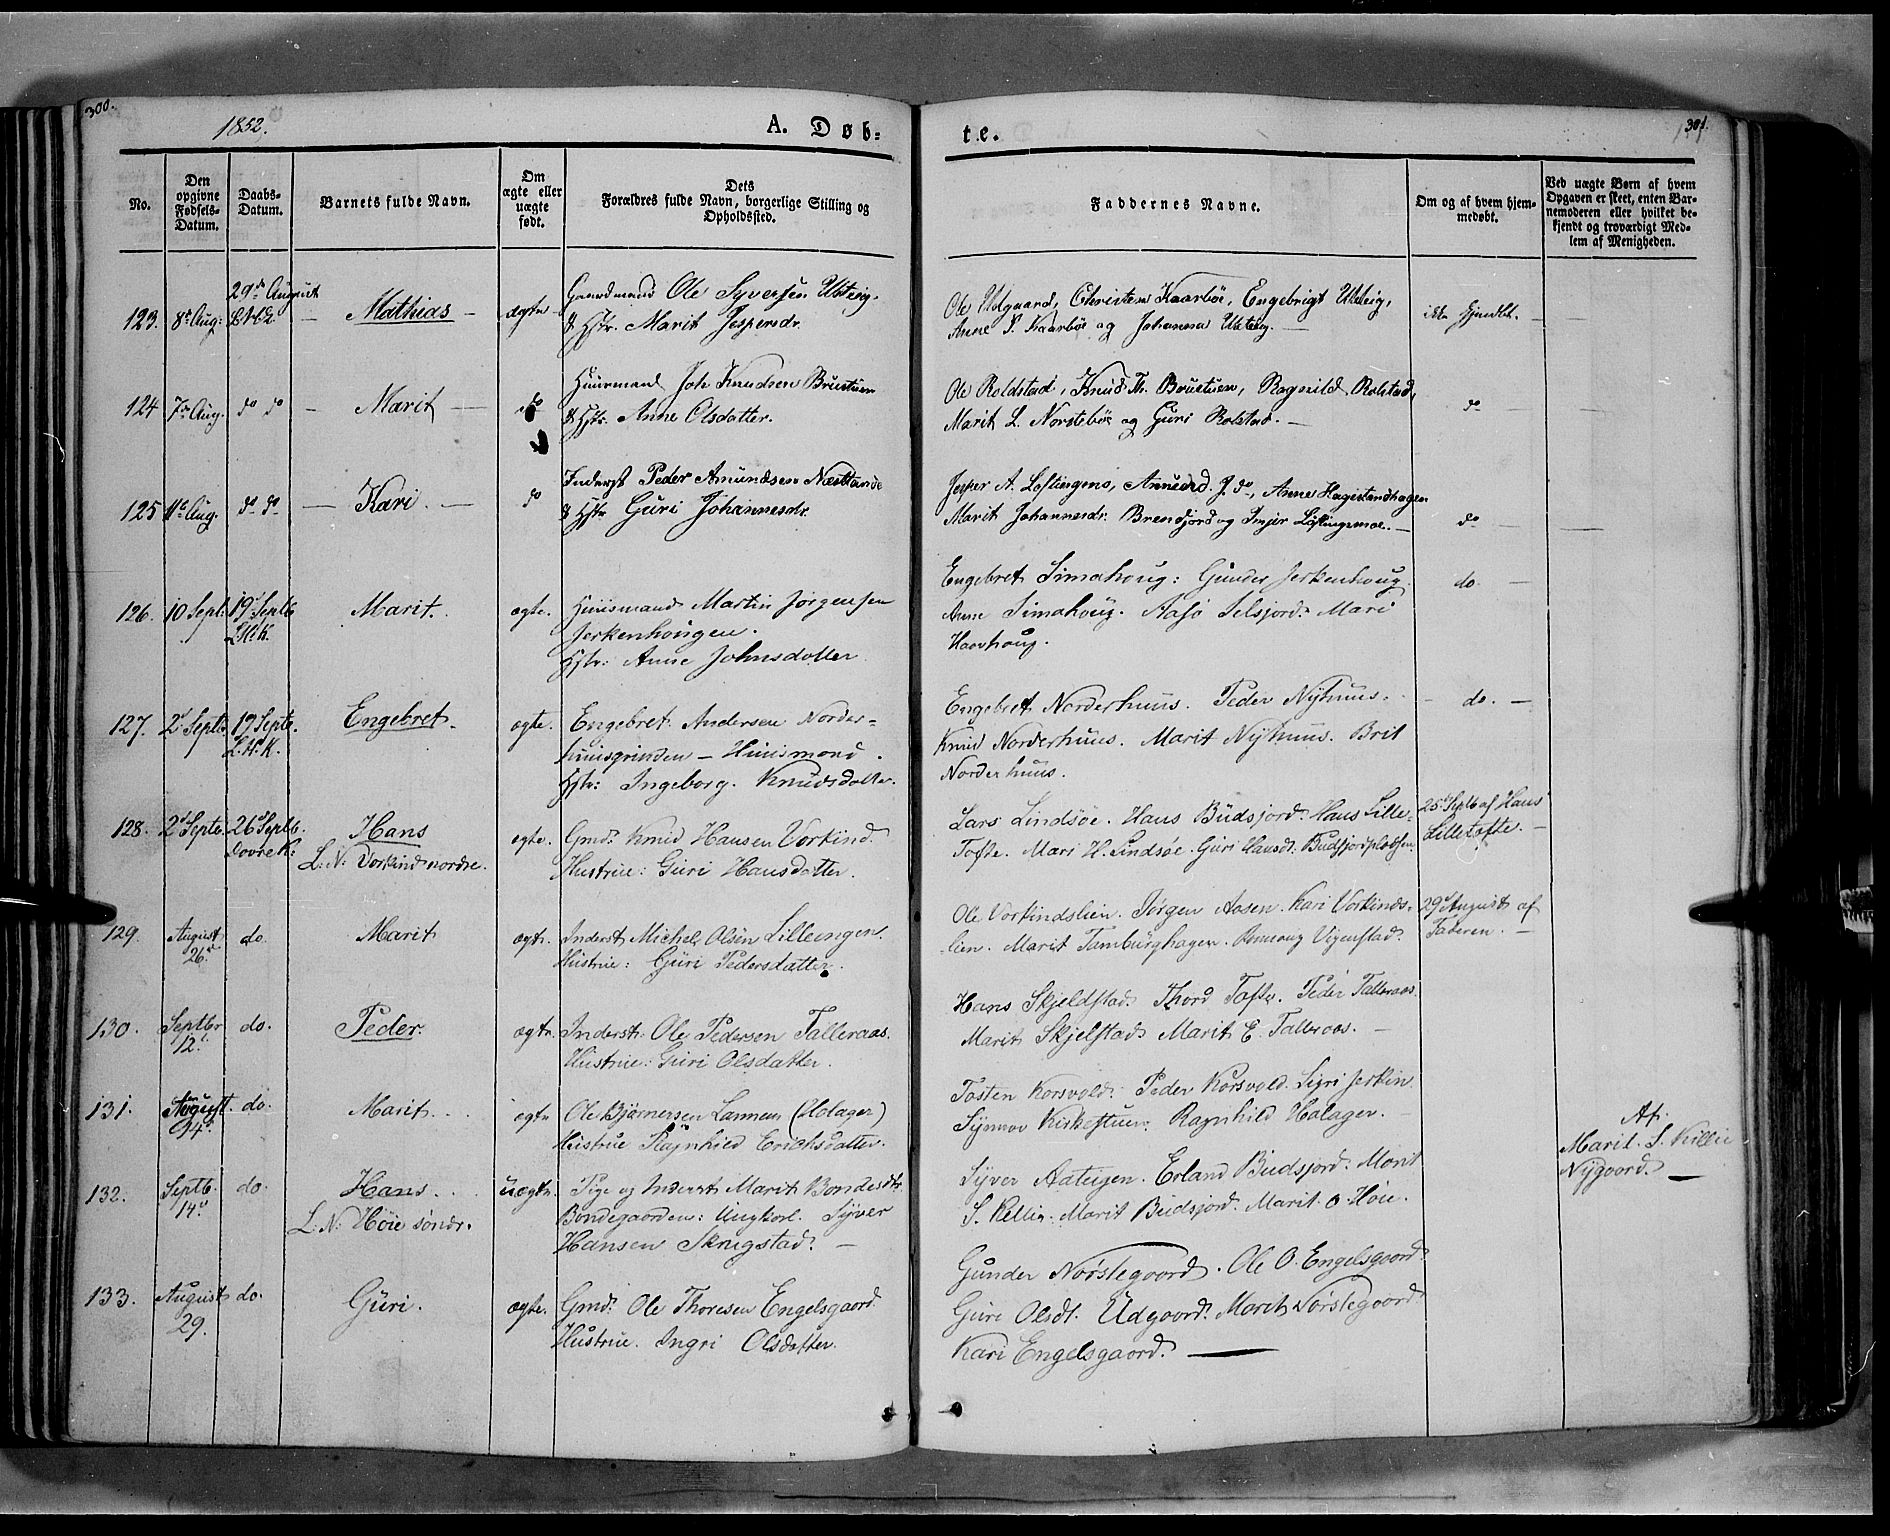 300.
1852.
A. Døb-
No.
Den opgivne Fødsels-Datum.
Daabs-Datum.
Barnets fulde Navn.
Om ægte eller uægte født.
Dets
Forældres fulde Navn, borgerlige Stilling og
Opholdssted.
123. 8de Aug: 29de August Mathias ægte Gaardmand Ole Syversen Ulsteig.
& Hstr. Marit Jespersdr.
124 7de Aug. do do Marit do Huusmand Joh Knudsen Brustuen
& Hstr. Anne Olsdatter.
125 Aug. do do Kari. do Inderst Peder Amundsen
& Hstr Guri Johannesdr.
126. 10 Sept: 19 Septb Marit. ægte. Huusmand Martin Jørgensen
L.H.K. Jerkenhougen.
Hstr: Anne Johnsdatter
127. 2d Septb. 19 Septb. Engebret. ægte. Engebret Andersen Norder-
L.H.K. huusgrinden – Huusmand.
Hstr: Ingeborg Knudsdatter.
128. 2d Septb. 26d Septb. Hans ægte. Gmd. Knud Hansen Vorkind.
Dovre K: L.N: Vorkind nordre. Hustrue: Guri Hansdatter.
129. August 26d do. Marit ægte. Inderst Michel Olsen Lilleengen.
Hustrue: Guri Pedersdatter.
130. Septbr 12d do. Peder ægte. Inderst: Ole Pedersen Talleraas.
Hustrue: Guri Olsdatter.
131. August do. Marit. ægte Ole Bjørnersen (Holager)
Hustrue Ragnhild Erichsdatter.
132. Septb. 14d do. Hans uægte. Pige og Inderst Marit Bondesdtr
L.N: Høie søndr. Bondegaarden: Ungkarl. Syver
Hansen Skrugstad. –
133. August 29. do. Guri. ægte. Gmd. Ole Thoresen Engelsgaard.
Hustrue. Ingri Olsdatter.
te.
301.
Faddernes Navne.
Om og af hvem hjem-
medøbt.
Ved uægte Børn af hvem
Opgaven er skeet, enten Bar-
nemoderen eller hvilket be-
kjendt og troværdigt Med-
lem af Menigheden.
Ole Udgaard, Christen Kaarbøe, Engebrigt Ulsteig,
Anne P. Kaarbøe og Johanna Ulsteig. – ikke hjemdbt.
Ole Roldstad, Knud Th. Brustuen, Ragnild Rolstad,
Marit L. Norstebøe og Guri Rolstad. – do
Jesper A. Løftingsmo, Amund J. do, Anne Hagestandhagen
Marit Johannesdr. Brendjord og Løftingsmoe. – do
Engebret Simahoug: Gunder Jerkenhoug. do. –
Anne Simahoug. Selsjord. Mari
Haavhoug.
Engebret Norderhuus. Peder Nyhuus. – do. –
Knud Norderhuus. Marit Nyhuus. Brit
Norderhuus.
Lars Lindsøe. Hans Budsjord. Hans Lille- 25d Septb af Hans
Tofte. Mari H. Lindsøe. Guri Hansdt. Budsjordpladsen Lilletofte. –
Ole Vorkindslien. Jørgen Aasen. Kari Vorkinds- 29d August af
lien. Marit Tamburghagen. Romoug Vigenstad. Faderen. –
Hans Skjeldstad. Thord Tofte. Peder Talleraas.
Marit Skjelstad Marit E. Talleraas. –
Tosten Korsvold: Peder Korsvold. Sigri Jerkin
Synnov Kirkestuen. Ragnhild Holager. –
Syver Aateigen. Erland Budsjord. Marit
S. Killie. Marit Budsjord. Marit O Høie.
Af:
Marit. S. Killie
Nygaard. –
Gunder Nørstegaard. Ole O. Engelsgaard
Guri Olsdt. Udgaard. Marit Nørstegaard
Kari Engelsgaard. –